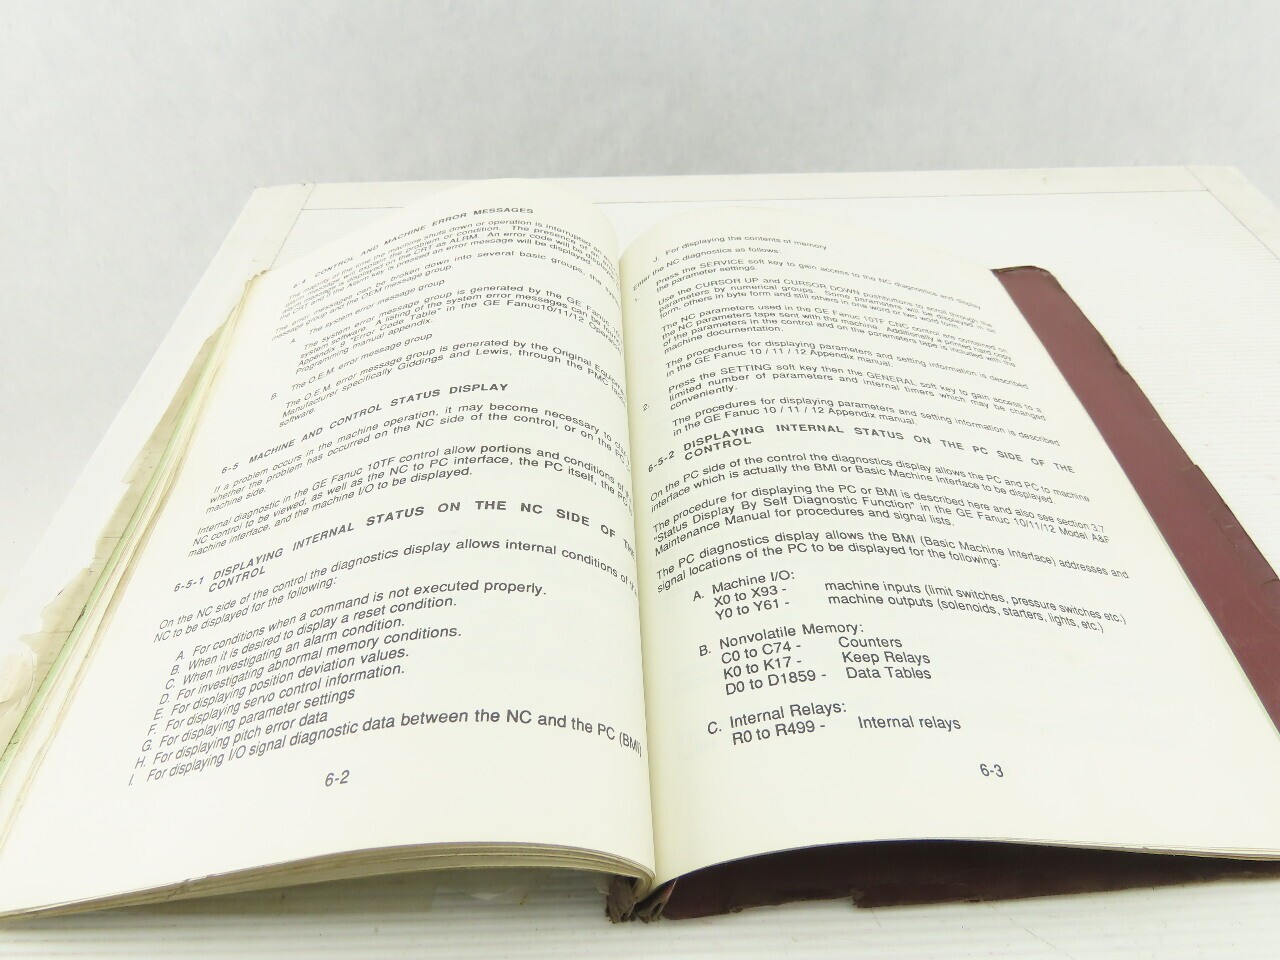 6-4 CONTROL AND MACHINE ERROR MESSAGES
The machine at the time the machine shuts down or operation is interrupted an
explain the problem or condition. The presence of an
is displayed on the CRT as ALRM. An error code will be
Alarm key is pressed an error message will be displayed
The messages can be broken down into several basic groups, the system
message group and the OEM message group.
A. The system error message group
The system error message group is generated by the GE Fanuc 10
system software. A listing of the system error messages can be
Appendix 9 "Error Code Table" in the GE Fanuc10/11/12 Operators
Programming manual appendix.
B. The O.E.M. error message group
The O.E.M. error message group is generated by the Original Equipment
Manufacturer specifically Giddings and Lewis, through the PMC
software.
6-5 MACHINE AND CONTROL STATUS DISPLAY
If a problem occurs in the machine operation, it may become necessary to
whether the problem has occurred on the NC side of the control, or on the PC
machine side.
Internal diagnostic in the GE Fanuc 10TF control allow portions and conditions of
NC control to be viewed, as well as the NC to PC interface, the PC itself, the PC
machine interface, and the machine I/O to be displayed.
6-5-1 DISPLAYING INTERNAL STATUS ON THE NC SIDE OF THE
CONTROL
On the NC side of the control the diagnostics display allows internal conditions of the
NC to be displayed for the following:
A. For conditions when a command is not executed properly.
B. When it is desired to display a reset condition.
C. When investigating an alarm condition.
D. For investigating abnormal memory conditions.
E. For displaying position deviation values.
F. For displaying servo control information.
G. For displaying parameter settings
H. For displaying pitch error data
I. For displaying I/O signal diagnostic data between the NC and the PC (BMI)
6-2
J. For displaying the contents of memory
Enter the NC diagnostics as follows:
1. Press the SERVICE soft key to gain access to the NC diagnostics and display
the parameter settings.
Use the CURSOR UP and CURSOR DOWN pushbuttons to scroll through the
parameters by numerical groups. Some parameters will be displayed in bit
form, others in byte form and still others in one word or two word form.
The NC parameters used in the GE Fanuc 10TF CNC control are contained on
the NC parameters tape sent with the machine. Additionally a printed hard copy
of the parameters in the control and on the parameters tape is included with the
machine documentation.
The procedures for displaying parameters and setting information is described
in the GE Fanuc 10 / 11 / 12 Appendix manual.
2. Press the SETTING soft key then the GENERAL soft key to gain access to a
limited number of parameters and internal timers which may be changed
conveniently.
The procedures for displaying parameters and setting information is described
in the GE Fanuc 10 / 11 / 12 Appendix manual.
6-5-2 DISPLAYING INTERNAL STATUS ON THE PC SIDE OF THE
CONTROL
On the PC side of the control the diagnostics display allows the PC and PC to machine
interface which is actually the BMI or Basic Machine Interface to be displayed.
The procedure for displaying the PC or BMI is described here and also see section 3.7
"Status Display By Self Diagnostic Function" in the GE Fanuc 10/11/12 Model A&F
Maintenance Manual for procedures and signal lists.
The PC diagnostics display allows the BMI (Basic Machine Interface) addresses and
signal locations of the PC to be displayed for the following:
A. Machine I/O:
X0 to X93 - machine inputs (limit switches, pressure switches etc.)
Y0 to Y61 - machine outputs (solenoids, starters, lights, etc.)
B. Nonvolatile Memory:
C0 to C74 - Counters
K0 to K17 - Keep Relays
D0 to D1859 - Data Tables
C. Internal Relays:
R0 to R499 - Internal relays
6-3